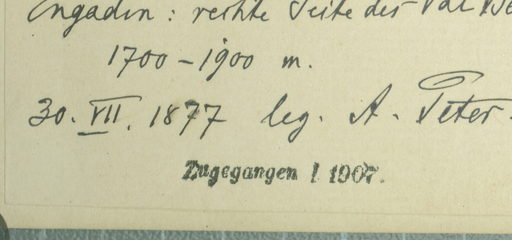 Engadin: rechte Seite des Val
1700-1900 m.
30. VII. 1877 leg. A. Peter.
Zugegangen ! 1907.